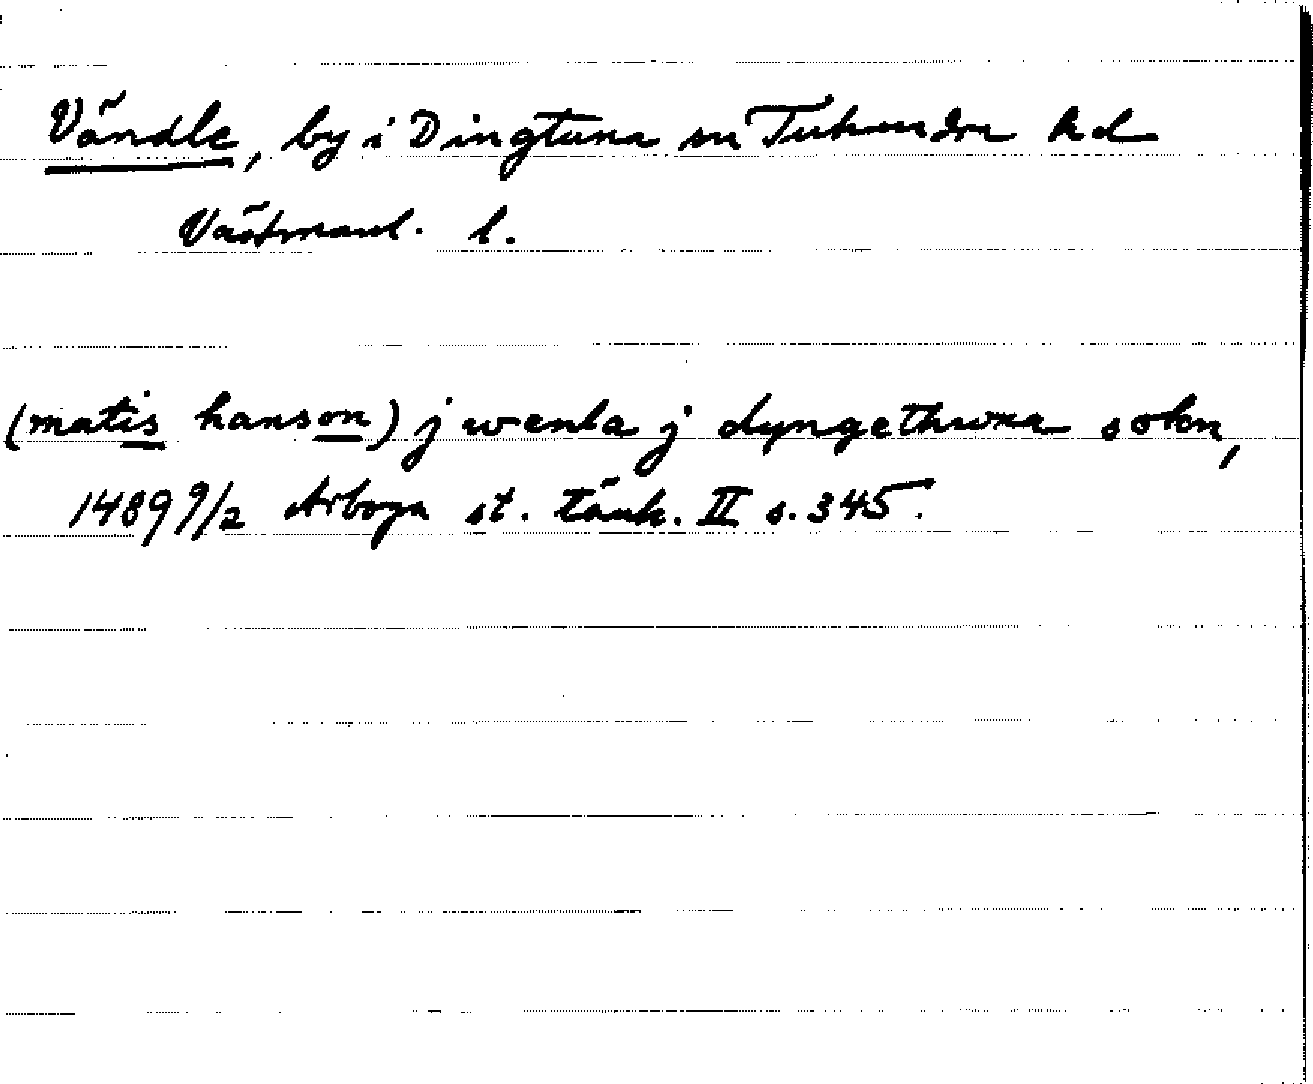 Vändle, by i Dingtuna sn Tuhundra hd
Västmanl. l.
(matis hanson) j wenla j dyngethwna sokn,
1489 9/2 Arboga st. tänk. II s. 345.